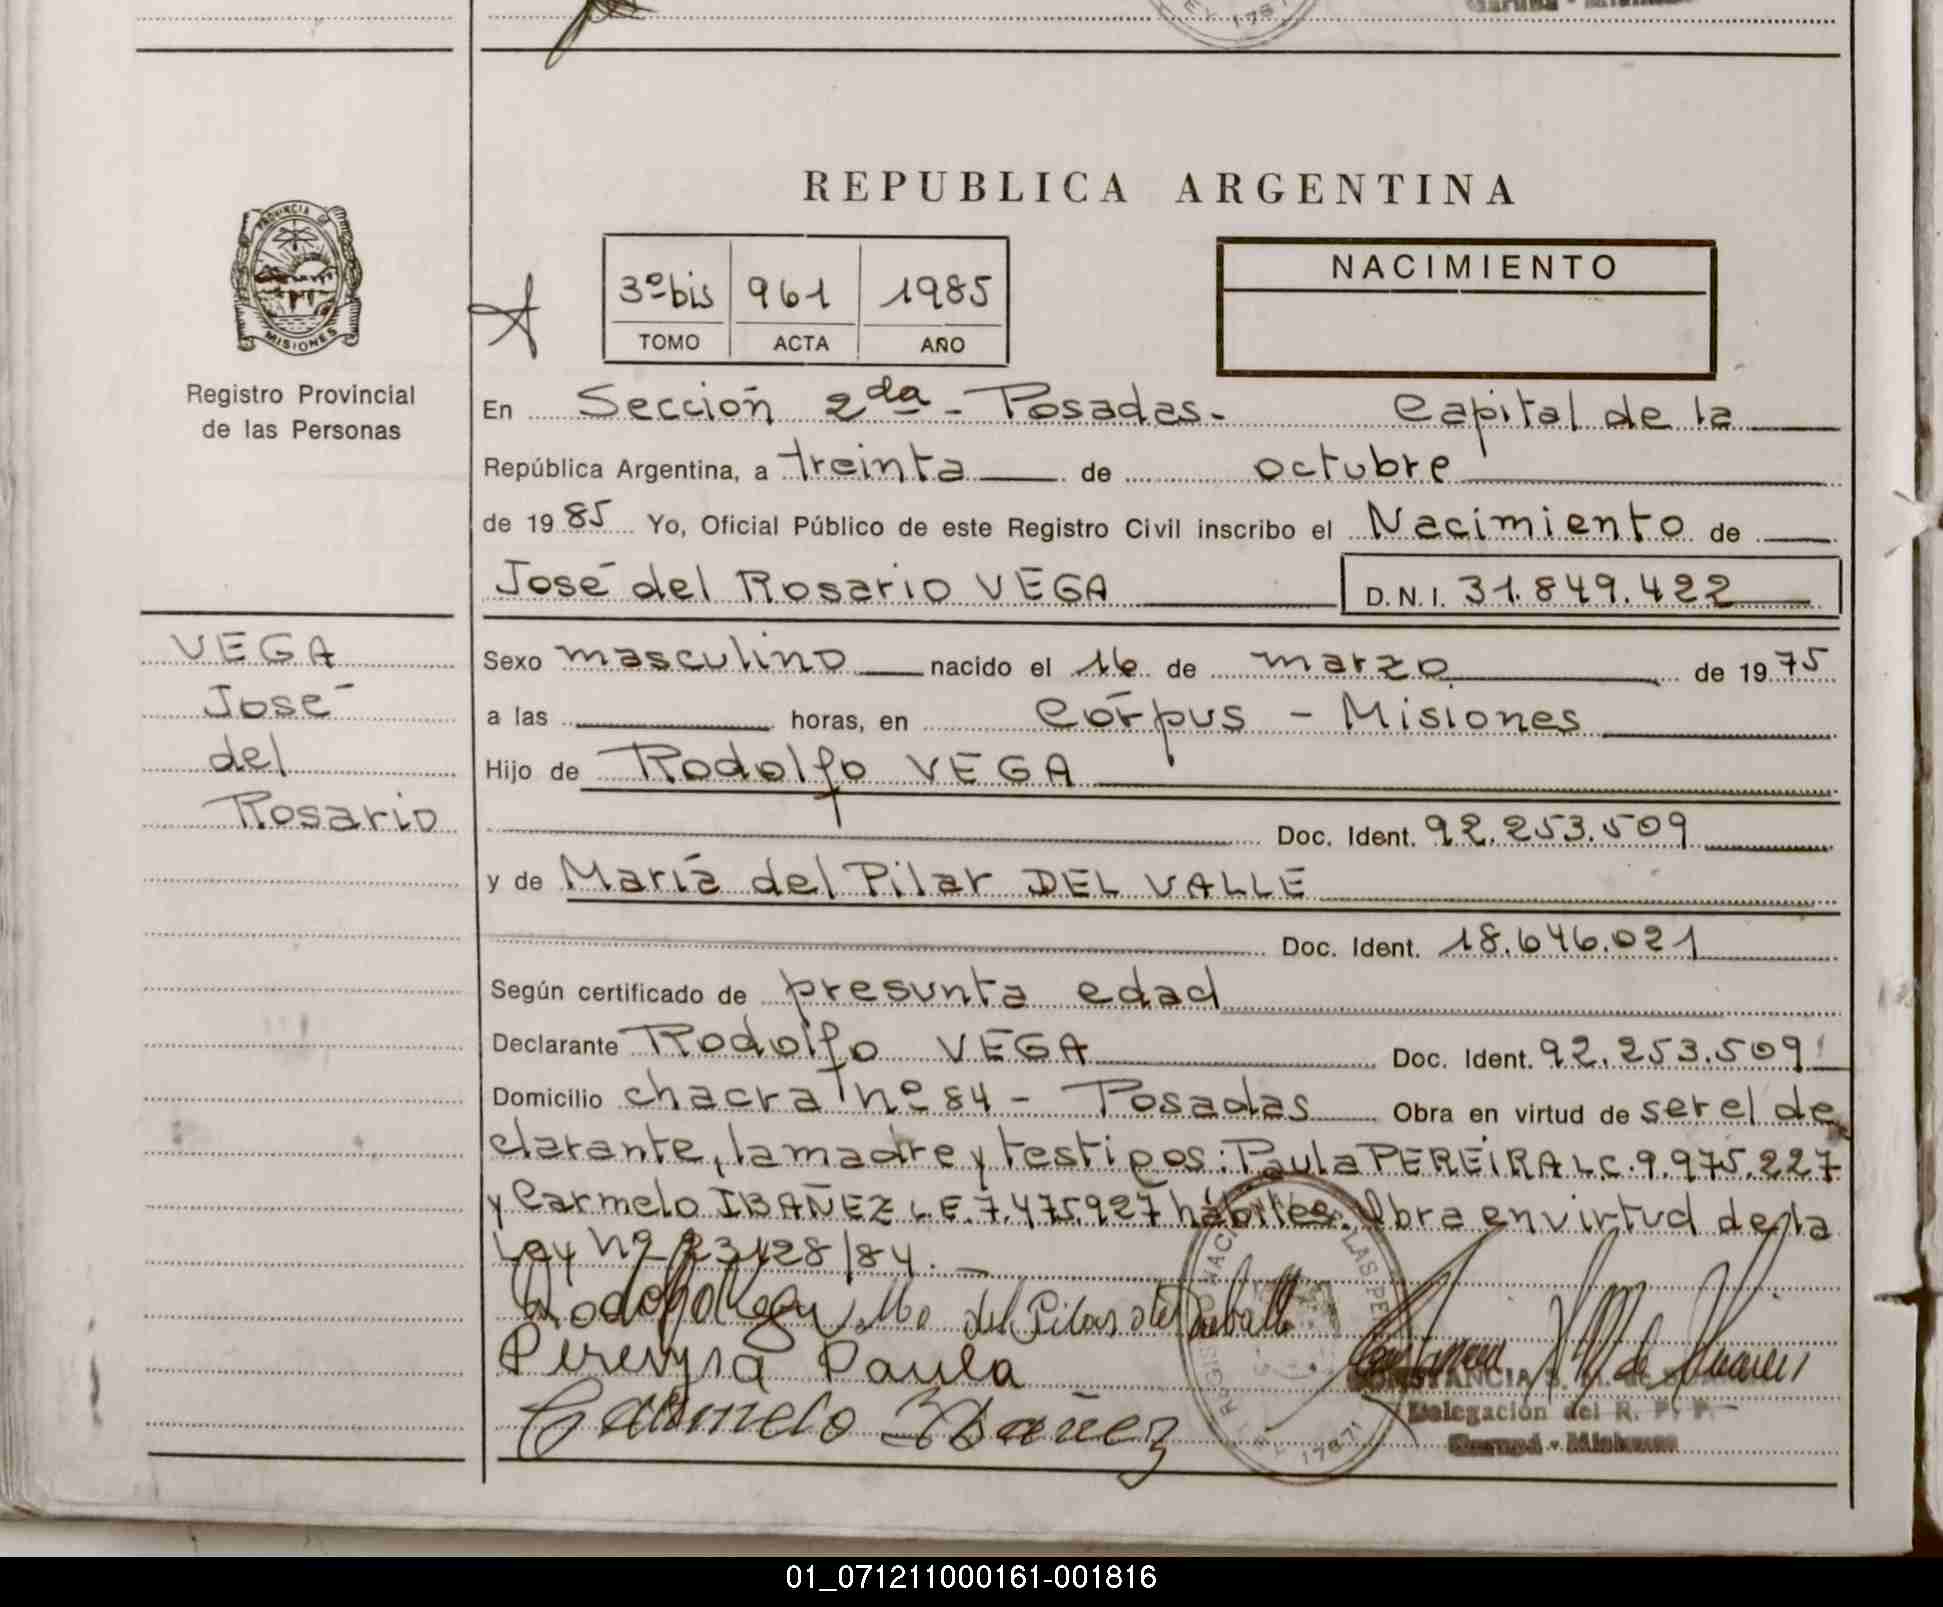 REPUBLICA ARGENTINA
PROVINCIA DE
MISIONES
Registro Provincial
de las Personas
3º bis 961 1985
TOMO ACTA AÑO
NACIMIENTO
En Sección 2da - Posadas - Capital de la
República Argentina, a treinta de octubre
de 1985 Yo, Oficial Público de este Registro Civil inscribo el Nacimiento de
José del Rosario VEGA D.N.I. 31.849.422
VEGA
José
del
Rosario
Sexo masculino nacido el 16 de marzo de 1975
a las horas, en Córpus - Misiones
Hijo de Rodolfo VEGA
Doc. Ident. 92.253.509
y de María del Pilar DEL VALLE
Doc. Ident. 18.646.021
Según certificado de presunta edad
Declarante Rodolfo VEGA Doc. Ident. 92.253.509
Domicilio chacra nº 84 - Posadas Obra en virtud de ser el de
clarante, la madre y testigos: Paula PEREIRA L.C. 9.975.227
y Carmelo IBAÑEZ L.E. 7.475.927 hábiles. Obra en virtud de la
Ley Nº 23128/84.
Rodolfo Vega Ma del Pilar del
Pereyra Paula
Carmelo Ibañez
CONSTANCIA
Delegación del R. P. P.
Misiones
01_071211000161-001816